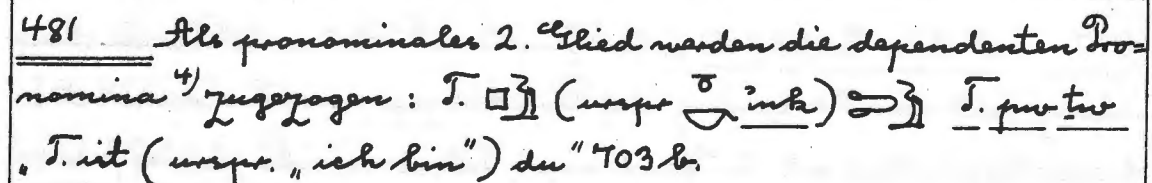 481 Als pronominales 2. Glied werden die dependenten Pro=
nomina ⁴⁾ zugezogen : T. 𓊪𓅱 (urspr 𓏌𓎡 ı͗nk) 𓍿𓅱 T. pw ṯw
„T. ist (urspr. „ich bin") du" 703 b.